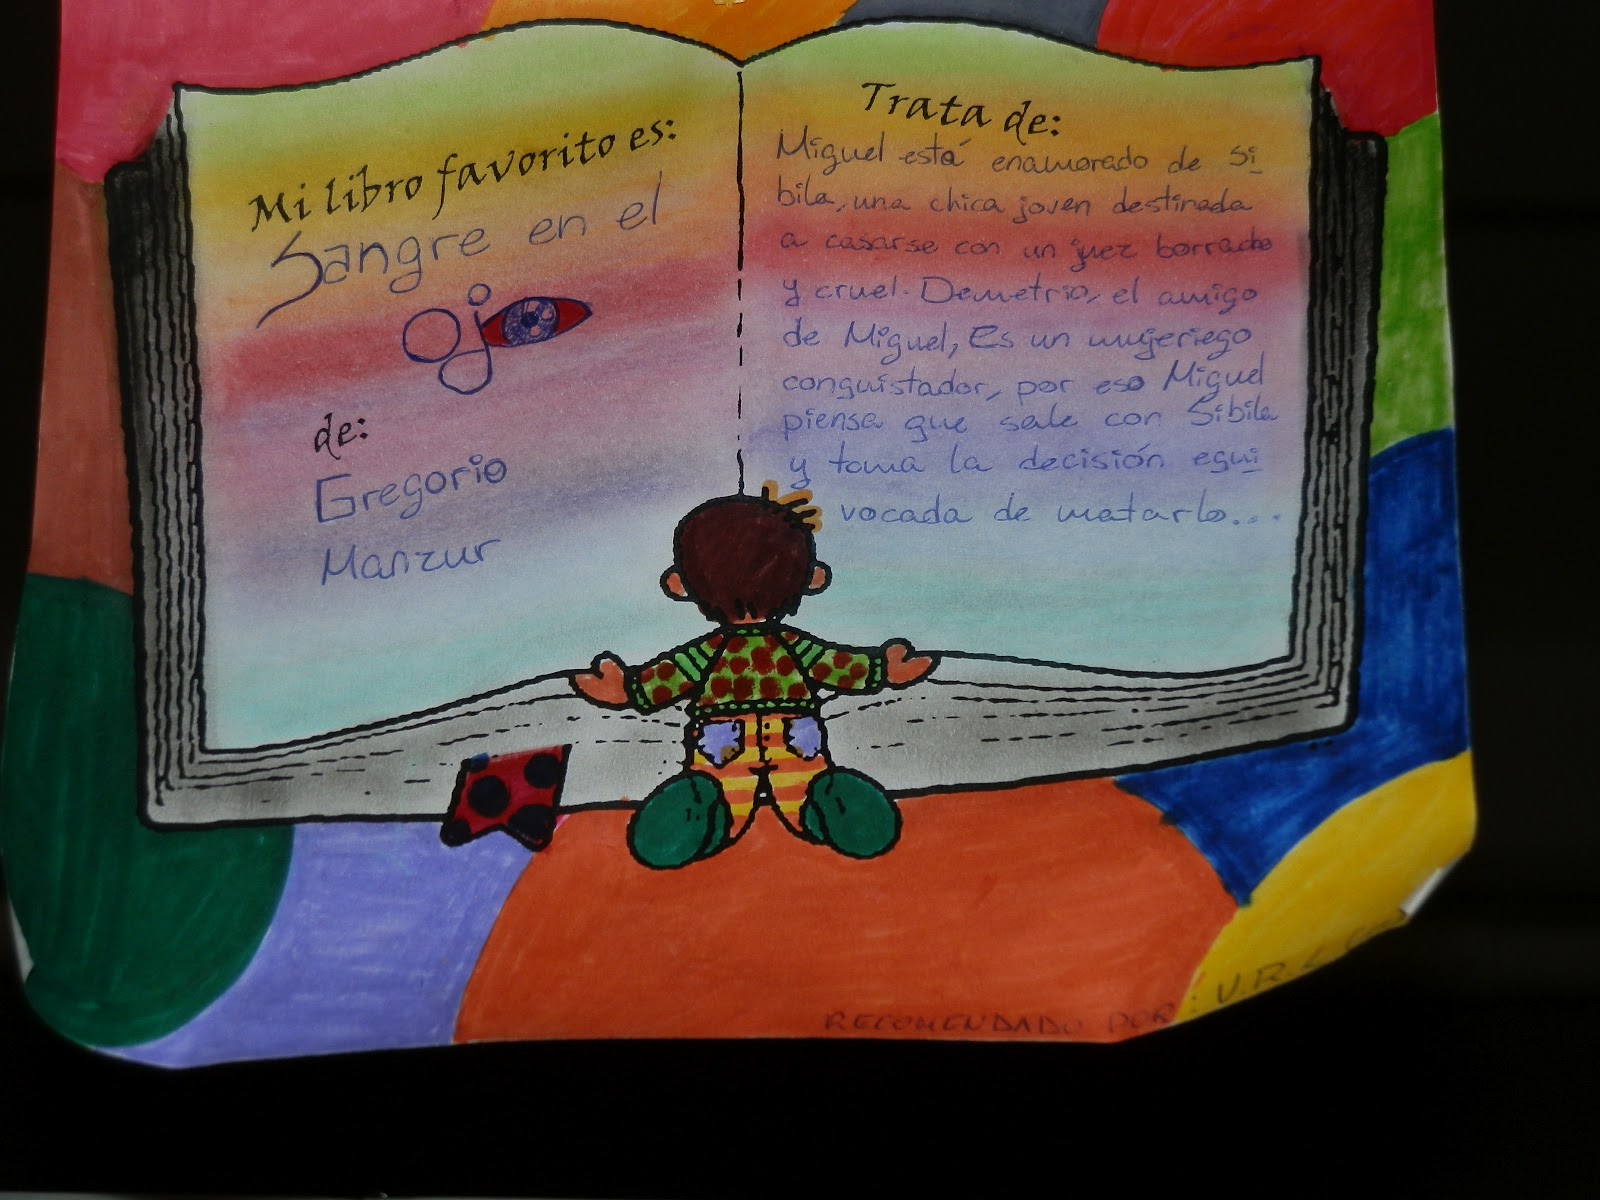 Mi libro favorito es:
Sangre en el
ojo
de:
Gregorio
Manzur
Trata de:
Miguel está enamorado de Si
bila, una chica joven destinada
a casarse con un juez borracho
y cruel. Demetrio, el amigo
de Miguel, Es un mujeriego
conquistador, por eso Miguel
piensa que sale con Sibila
y toma la decisión equi
vocada de matarlo...
RECOMENDADO POR: V.R.